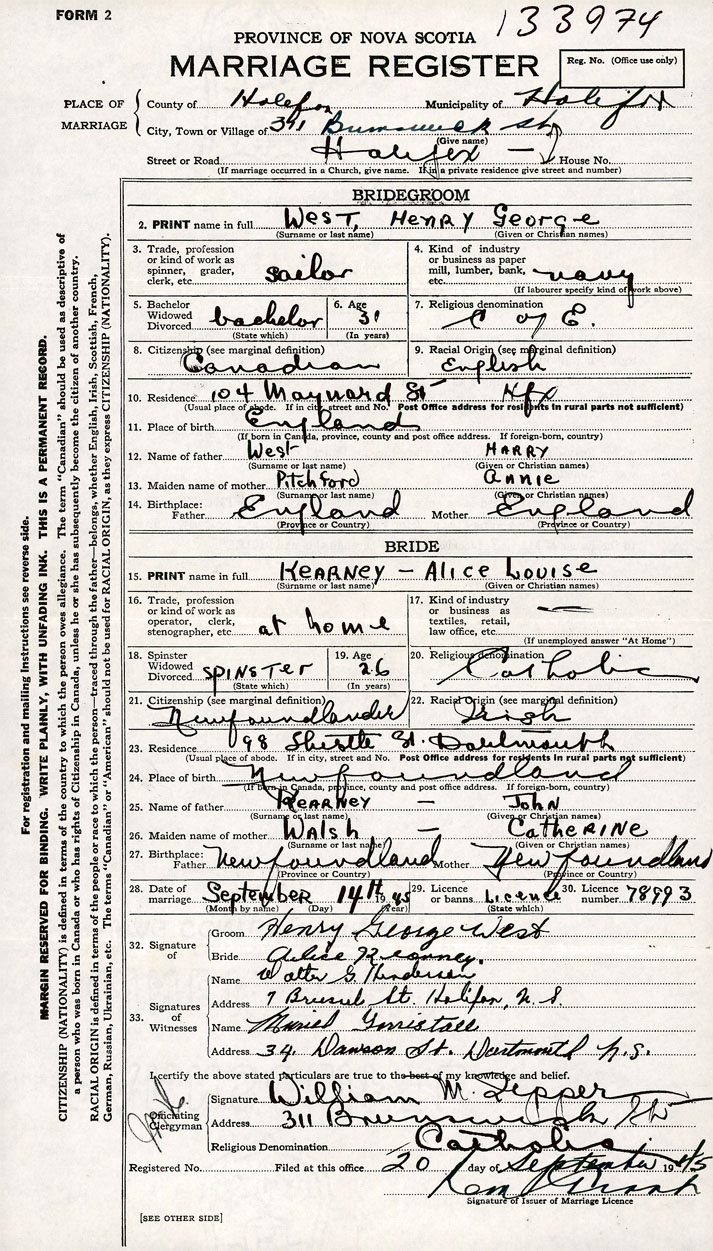 FORM 2
133974
PROVINCE OF NOVA SCOTIA
MARRIAGE REGISTER
Reg. No. (Office use only)
PLACE OF MARRIAGE
County of Halifax Municipality of Halifax
City, Town or Village of 311 Brunswick St.
(Give name)
Street or Road Halifax — House No.
(If marriage occurred in a Church, give name. If in a private residence give street and number)
BRIDEGROOM
2. PRINT name in full West, Henry George
(Surname or last name) (Given or Christian names)
3. Trade, profession or kind of work as spinner, grader, clerk, etc. sailor
4. Kind of industry or business as paper mill, lumber, bank, etc. navy
(If labourer specify kind of work above)
5. Bachelor Widowed Divorced bachelor
(State which)
6. Age 31
(In years)
7. Religious denomination C of E.
8. Citizenship (see marginal definition) Canadian
9. Racial Origin (see marginal definition) English
10. Residence 104 Maynard St Hfx
(Usual place of abode. If in city, street and No. Post Office address for residents in rural parts not sufficient)
11. Place of birth England
(If born in Canada, province, county and post office address. If foreign-born, country)
12. Name of father West HARRY
(Surname or last name) (Given or Christian names)
13. Maiden name of mother Pitchford Annie
(Surname or last name) (Given or Christian names)
14. Birthplace: Father England Mother England
(Province or Country) (Province or Country)
BRIDE
15. PRINT name in full KEARNEY – ALICE LOUISE
(Surname or last name) (Given or Christian names)
16. Trade, profession or kind of work as operator, clerk, stenographer, etc. at home
17. Kind of industry or business as textiles, retail, law office, etc. —
(If unemployed answer "At Home")
18. Spinster Widowed Divorced SPINSTER
(State which)
19. Age 26
(In years)
20. Religious denomination Catholic
21. Citizenship (see marginal definition) Newfoundlander
22. Racial Origin (see marginal definition) Irish
23. Residence 98 St. Dartmouth
(Usual place of abode. If in city, street and No. Post Office address for residents in rural parts not sufficient)
24. Place of birth Newfoundland
(If born in Canada, province, county and post office address. If foreign-born, country)
25. Name of father KEARNEY – JOHN
(Surname or last name) (Given or Christian names)
26. Maiden name of mother WALSH – CATHERINE
(Surname or last name) (Given or Christian names)
27. Birthplace: Father Newfoundland Mother Newfoundland
(Province or Country) (Province or Country)
28. Date of marriage September 14th 1945
(Month by name) (Day) (Year)
29. Licence or banns Licence
(State which)
30. Licence number 78993
32. Signature of
Groom Henry George West
Bride Alice Kearney.
33. Signatures of Witnesses
Name Walter G Henderson
Address 7 St. Halifax, N.S.
Name Muriel
Address 34 Dawson St. Dartmouth N.S.
I certify the above stated particulars are true to the best of my knowledge and belief.
Officiating Clergyman
Signature William M. Lepper
Address 311 Brunswick St
Religious Denomination Catholic
Registered No. Filed at this office 20 day of September 1945
Signature of Issuer of Marriage Licence
[SEE OTHER SIDE]
For registration and mailing instructions see reverse side.
MARGIN RESERVED FOR BINDING. WRITE PLAINLY, WITH UNFADING INK. THIS IS A PERMANENT RECORD.
CITIZENSHIP (NATIONALITY) is defined in terms of the country to which the person owes allegiance. The term "Canadian" should be used as descriptive of
a person who was born in Canada or who has rights of Citizenship in Canada, unless he or she has subsequently become the citizen of another country.
RACIAL ORIGIN is defined in terms of the people or race to which the person—traced through the father—belongs, whether English, Irish, Scottish, French,
German, Russian, Ukrainian, etc. The terms "Canadian" or "American" should not be used for RACIAL ORIGIN, as they express CITIZENSHIP (NATIONALITY).